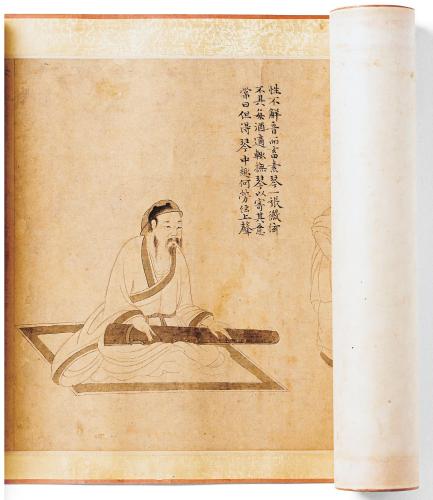 性不解音而畜素琴一張徽絃
不具每酒適輒撫琴以寄其意
常曰但得琴中趣何勞絃上聲